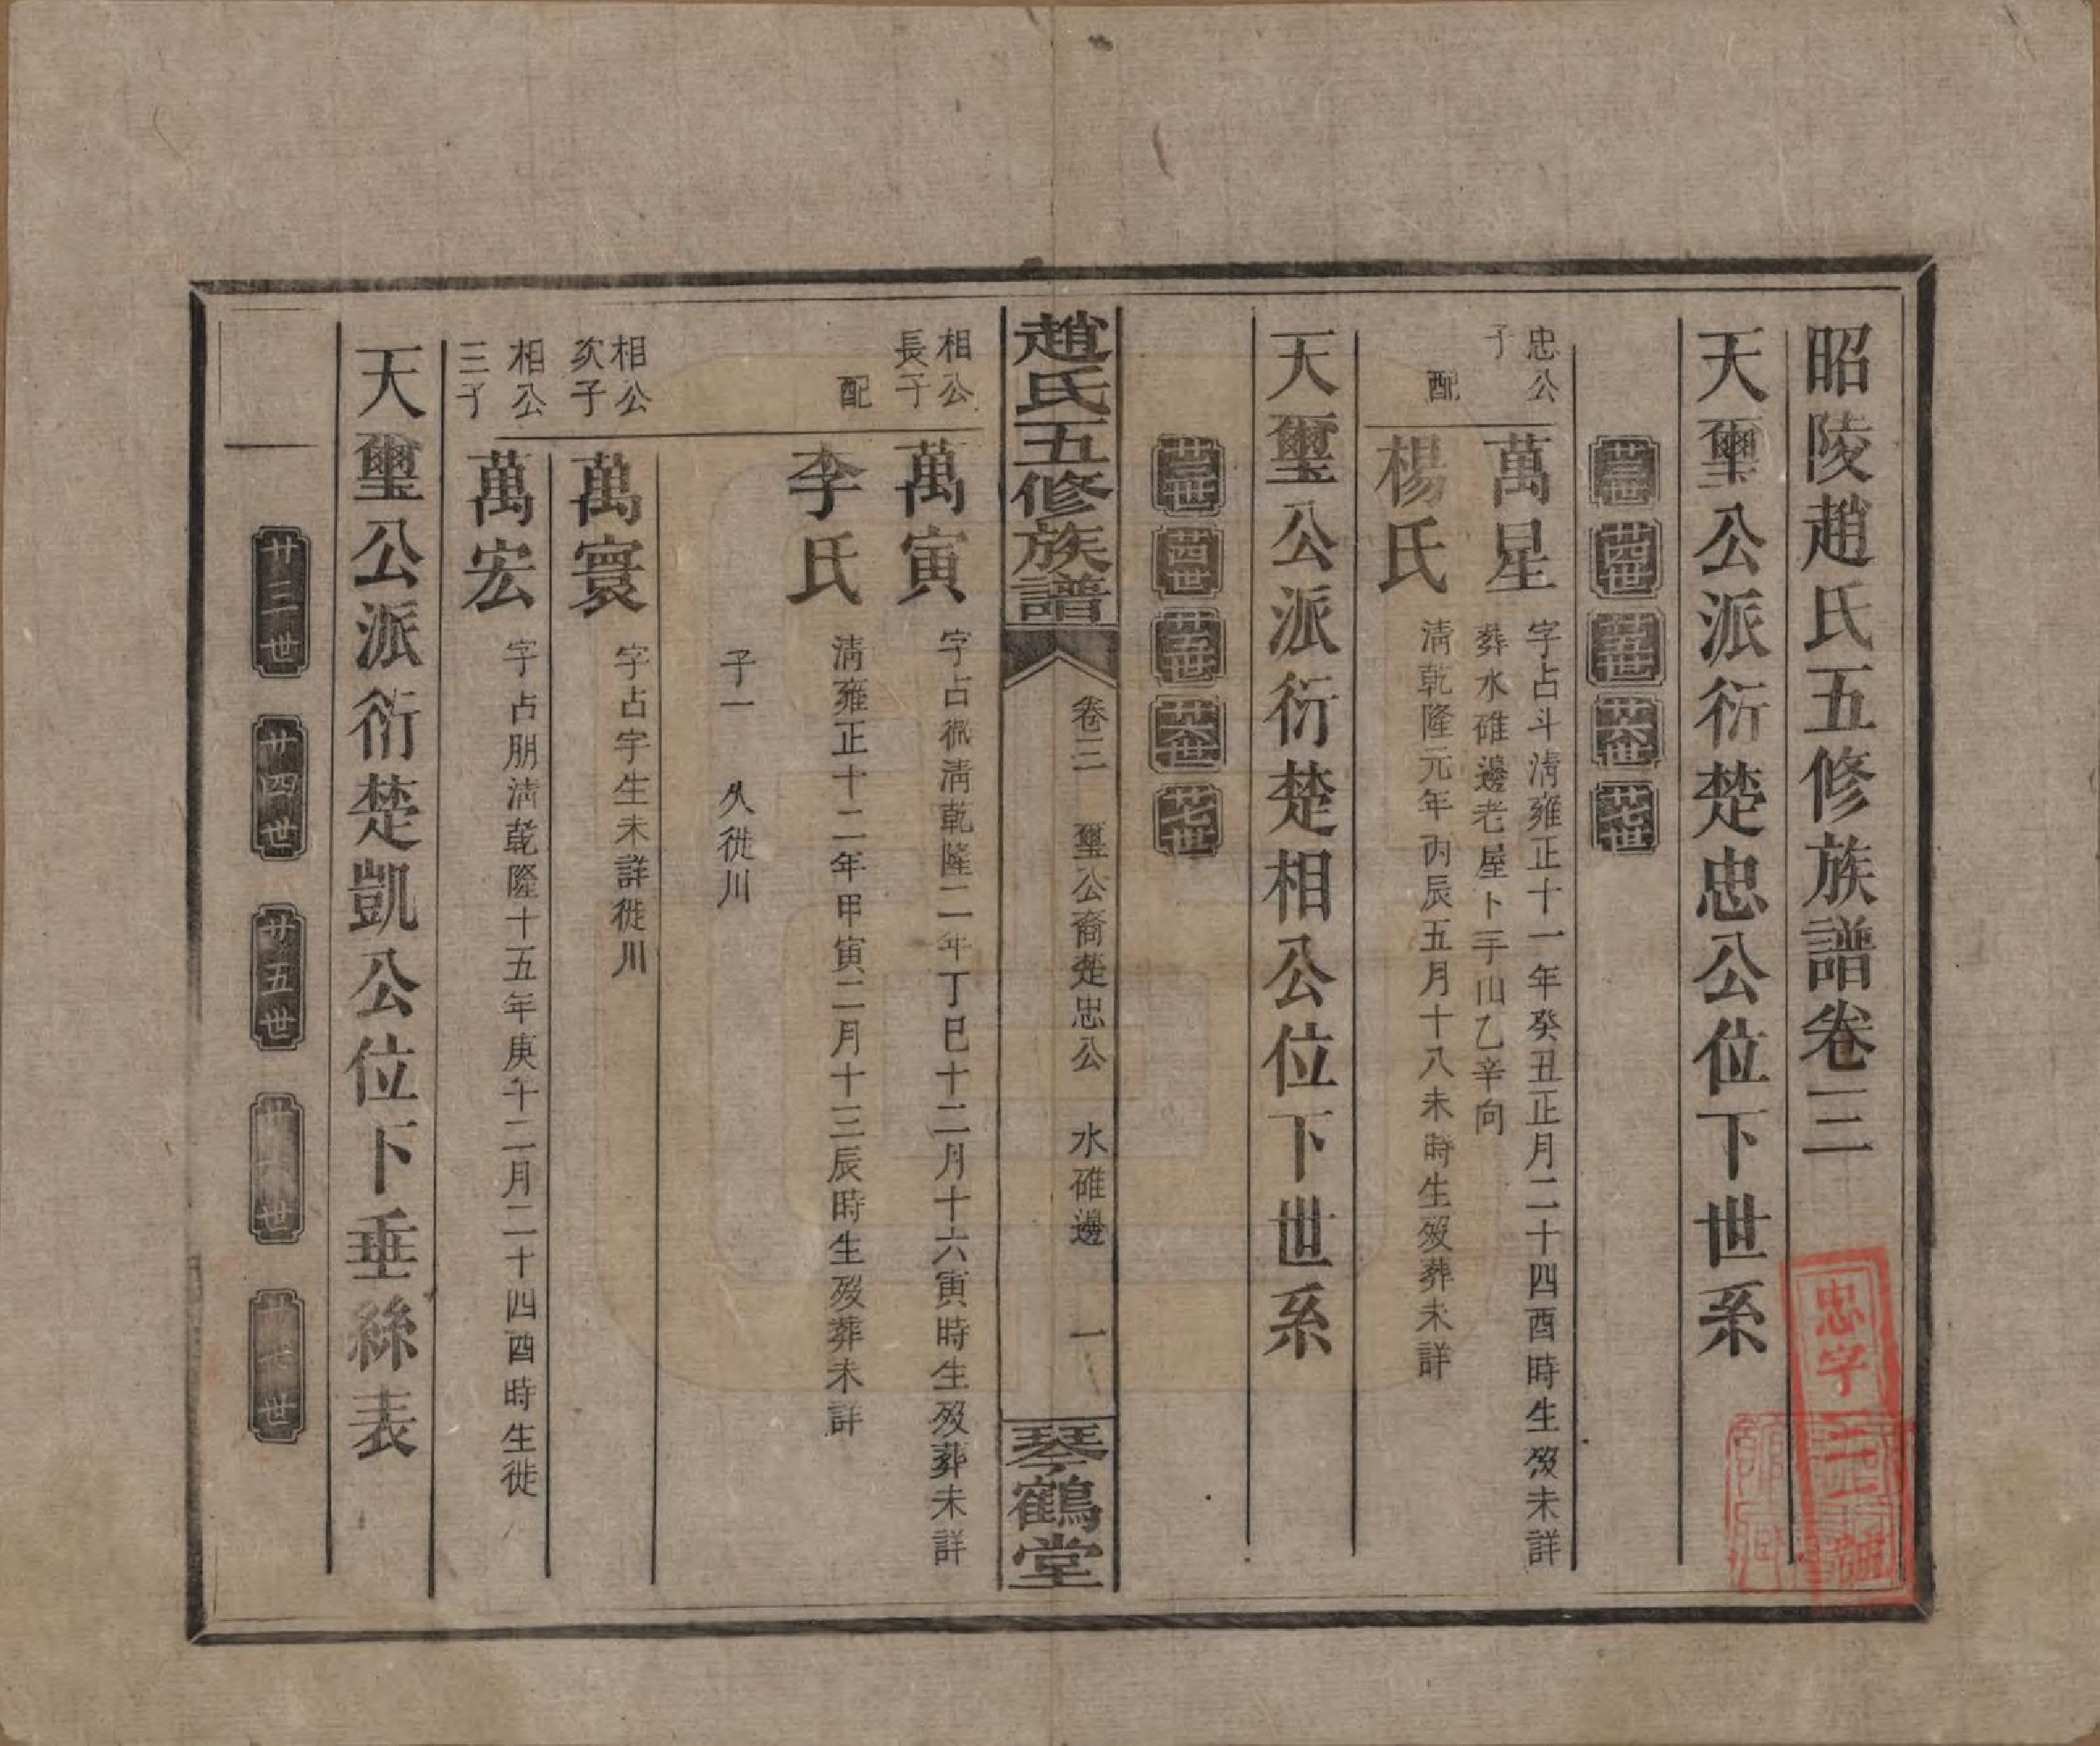 昭陵趙氏五修族譜卷三
天璽公派衍楚忠公位下世系
廿三世 廿四世 廿五世 廿六世 廿七世
忠公
子
萬星
字占斗清雍正十一年癸丑正月二十四酉時生歿未詳
葬水碓邊老屋卜手山乙辛向
配
楊氏
清乾隆元年丙辰五月十八未時生歿葬未詳
天璽公派衍楚相公位下世系
廿三世 廿四世 廿五世 廿六世 廿七世
趙氏五修族譜
卷三 璽公裔楚忠公 水碓邊 一
琴鶴堂
相公
長子
萬寅
字占微清乾隆二年丁巳十二月十六寅時生歿葬未詳
配
李氏
清雍正十二年甲寅二月十三辰時生歿葬未詳
子一 久徙川
相公
次子
萬寰
字占宇生未詳徙川
相公
三子
萬宏
字占朋清乾隆十五年庚午二月二十四酉時生徙
天璽公派衍楚凱公位下垂絲表
廿三世 廿四世 廿五世 廿六世 廿七世
忠字